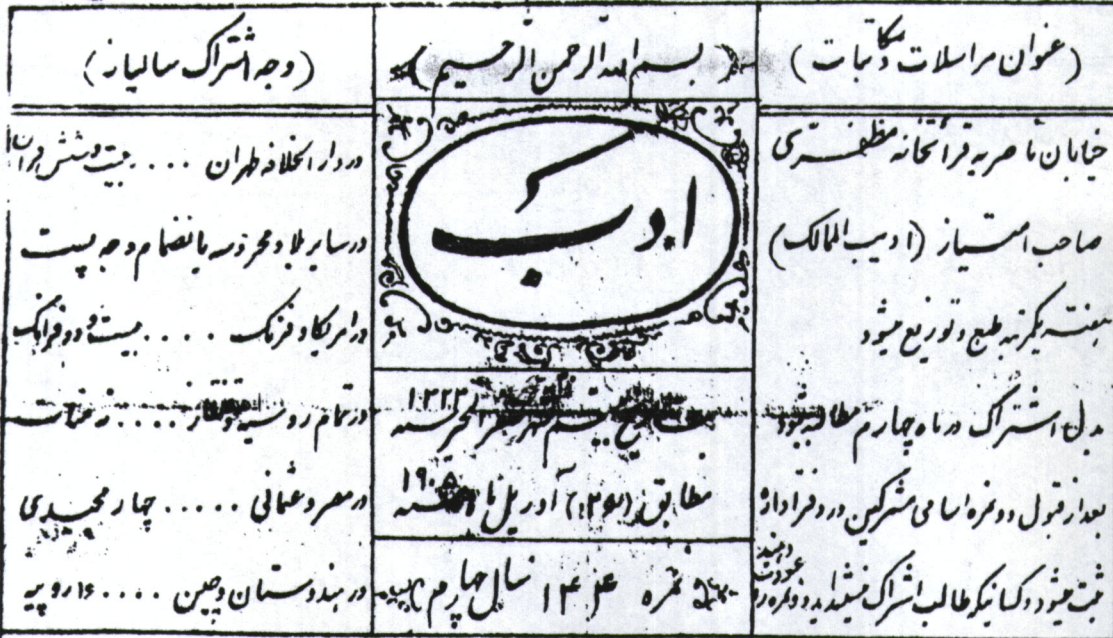 (عنوان مراسلات و مکاتبات)
خیابان ناصریه قرائتخانه مظفری
صاحب امتیاز (ادیب الممالک)
هفته یکمرتبه طبع و توزیع میشود
بدل اشتراک در ماه چهارم مطالبه میشود
بعد از قبول دو نمره اسامی مشترکین در دفتر اداره
ثبت میشود و کسانیکه طالب اشتراک نیستند باید دو نمره را
عودت دهند
(بسم الله الرحمن الرحیم)
ادب
۱۳۲۳
مطابق آوریل ماه سنه ۱۹۰۵
نمره ۱۴۴ سال چهارم
(وجه اشتراک سالیانه)
در دار الخلافه طهران .... بیست و شش قران
در سایر بلاد محروسه بانضمام وجه پست
در امریکا و فرنگ .... بیست و دو فرانک
در تمام روسیه و قفقاز ....
در مصر و عثمانی ..... چهار مجیدی
در هندوستان و چین .... ۱۶ روپیه